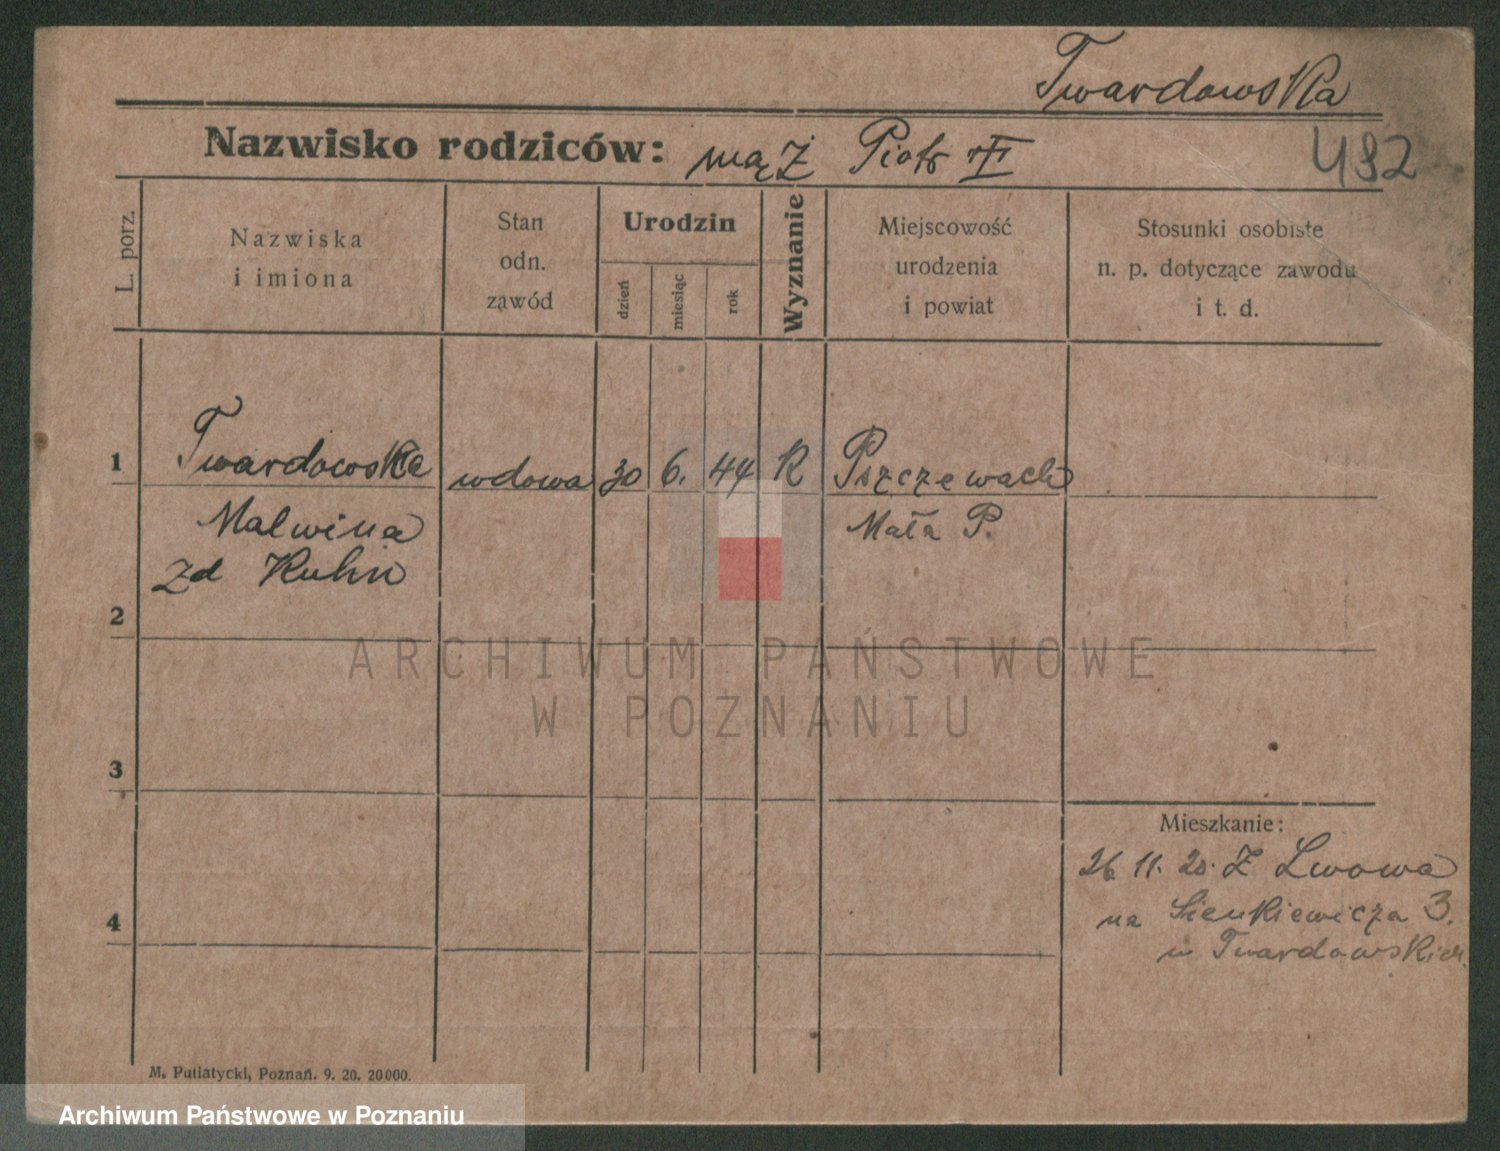 Twardowska
Nazwisko rodziców: mąż Piotr
492
L. porz.
Nazwiska
i imiona
Stan
odn.
zawód
Urodzin
dzień
miesiąc
rok
Wyznanie
Miejscowość
urodzenia
i powiat
Stosunki osobiste
n. p. dotyczące zawodu
i t. d.
1 Twardowska wdowa 30 6. 44 R Pszczewach
Malwina Mała P.
zd Kuhn
2
ARCHIWUM PAŃSTWOWE
W POZNANIU
3
Mieszkanie:
26. 11. 20. Z Lwowa
4 na Sienkiewicza 3.
w Twardowskich
M. Putiatycki, Poznań. 9. 20. 20000.
Archiwum Państwowe w Poznaniu